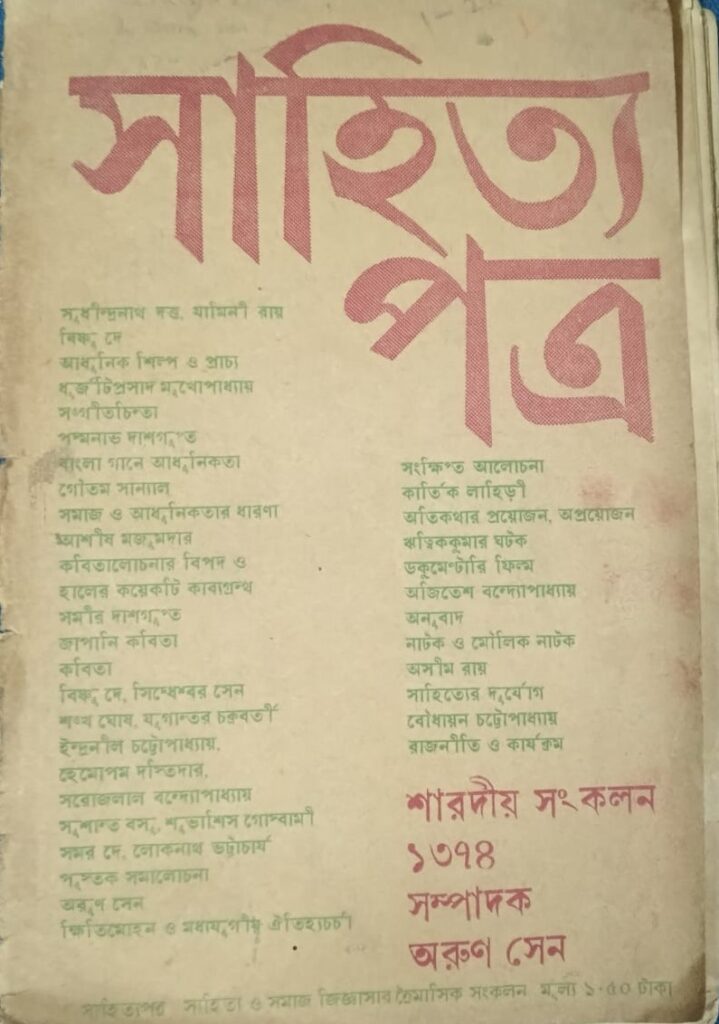 সাহিত্য
পত্র
সুধীন্দ্রনাথ দত্ত, যামিনী রায়
বিষ্ণু দে
আধুনিক শিল্প ও প্রাচ্য
ধূর্জটিপ্রসাদ মুখোপাধ্যায়
সংগীতচিন্তা
পদ্মনাভ দাশগুপ্ত
বাংলা গানে আধুনিকতা
গৌতম সান্যাল
সমাজ ও আধুনিকতার ধারণা
আশীষ মজুমদার
কবিতালোচনার বিপদ ও
হালের কয়েকটি কাব্যগ্রন্থ
সমীর দাশগুপ্ত
জাপানি কবিতা
কবিতা
বিষ্ণু দে, সিদ্ধেশ্বর সেন
শঙ্খ ঘোষ, যুগান্তর চক্রবর্তী
ইন্দ্রনীল চট্টোপাধ্যায়,
হেমোপম দস্তিদার,
সরোজলাল বন্দ্যোপাধ্যায়
সুশান্ত বসু, শুভাশিস গোস্বামী
সমর দে, লোকনাথ ভট্টাচার্য
পুস্তক সমালোচনা
অরুণ সেন
ক্ষিতিমোহন ও মধ্যযুগীয় ঐতিহ্যচর্চা
সংক্ষিপ্ত আলোচনা
কার্তিক লাহিড়ী
অতিকথার প্রয়োজন, অপ্রয়োজন
ঋত্বিককুমার ঘটক
ডকুমেণ্টারি ফিল্ম
অজিতেশ বন্দ্যোপাধ্যায়
অনুবাদ
নাটক ও মৌলিক নাটক
অসীম রায়
সাহিত্যের দুর্যোগ
বৌধায়ন চট্টোপাধ্যায়
রাজনীতি ও কার্যক্রম
শারদীয় সংকলন
১৩৭৪
সম্পাদক
অরুণ সেন
সাহিত্যপত্র সাহিত্য ও সমাজ জিজ্ঞাসার ত্রৈমাসিক সংকলন মূল্য ১·৫০ টাকা